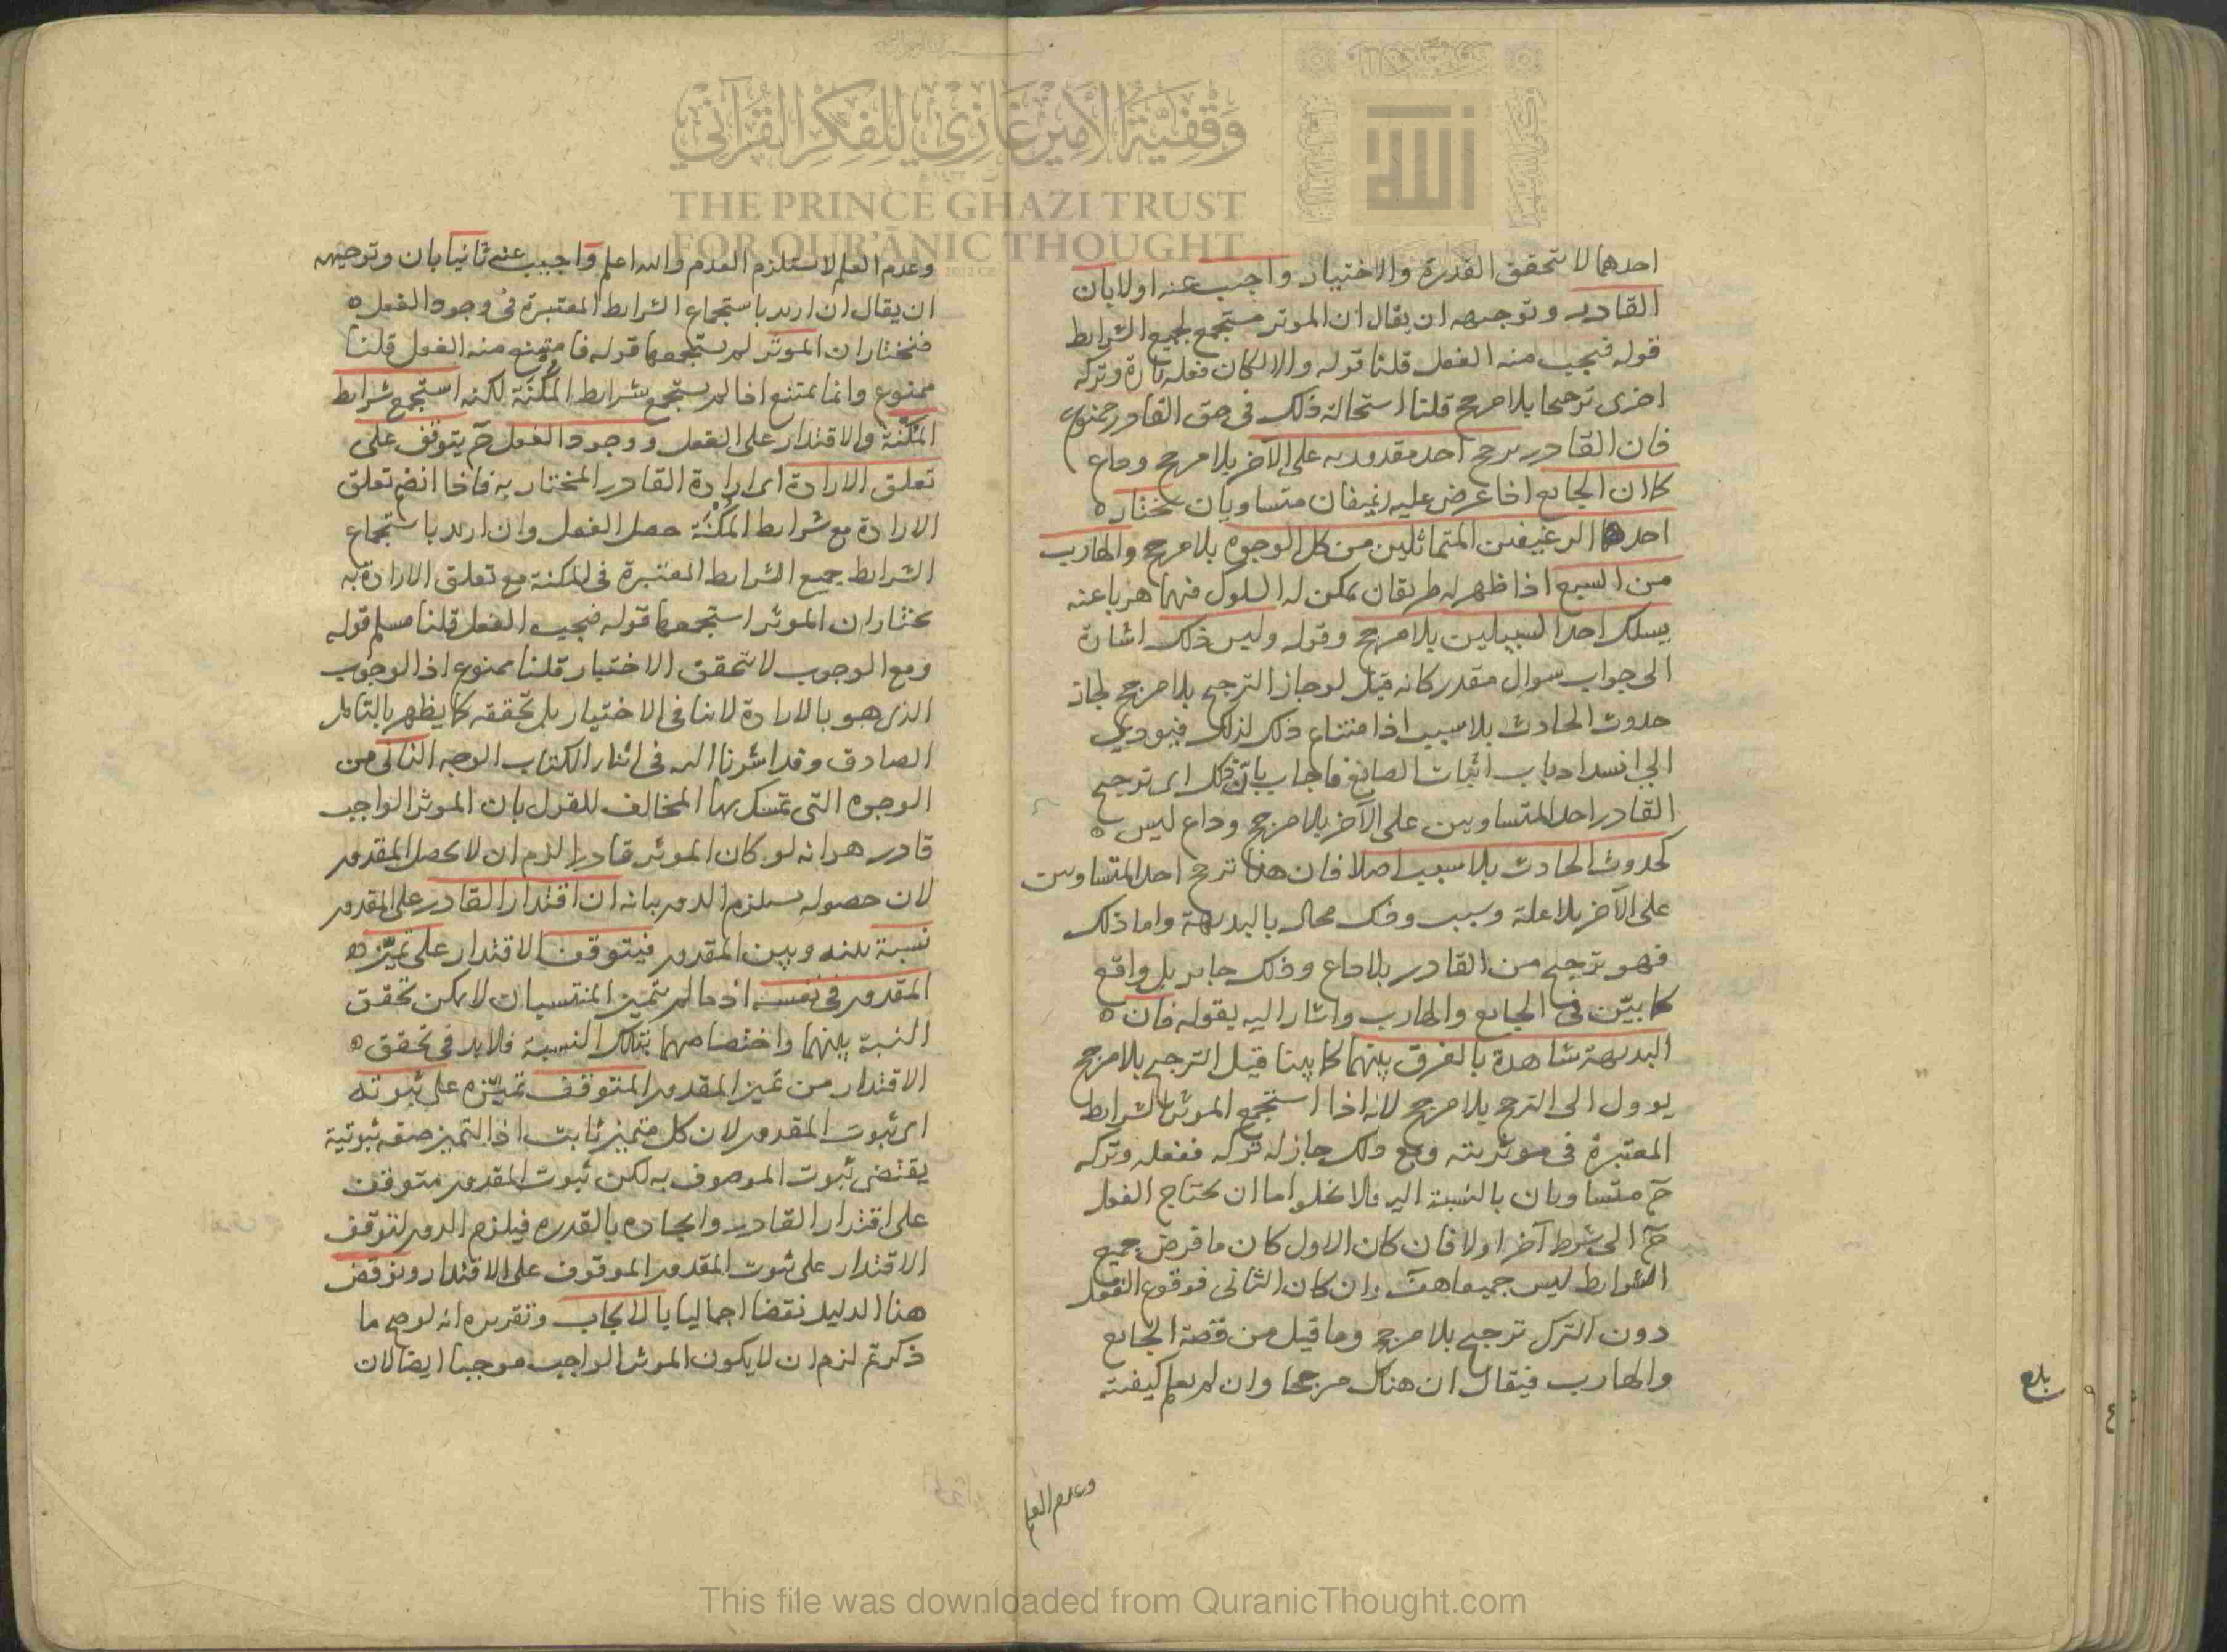 وقفية الأمير غازي للفكر القرآني
THE PRINCE GHAZI TRUST
FOR QUR'ĀNIC THOUGHT
الله
احدهما لا تتحقق القدرة والاختيار واجيب عنه اولا بان
القادر وتوجيهه ان يقال ان الموثر مستجمع لجميع الشرايط
قوله فيجب منه الفعل قلنا قوله والا لكان فعله تارة وتركه
اخرى ترجيحا بلا مرجح قلنا استحالة ذلك في حق القادر ممنوع
فان القادر يرجح احد مقدوريه على الآخر بلا مرجح وداع
كما ان الجايع اذا عرض عليه رغيفان متساويان يختار
احد الرغيفين المتماثلين من كل الوجوه بلا مرجح والهارب
من السبع اذا ظهر له طريقان يمكن له السلوك فيهما هربا عنه
يسلك احد السبيلين بلا مرجح وقوله وليس ذلك اشارة
الى جواب سوال مقدر كانه قيل لو جاز الترجيح بلا مرجح لجاز
حدوث الحادث بلا سبب اذ امتناع ذلك لذلك فيودي
الى انسداد باب اثبات الصانع فاجاب بان ذلك اى ترجيح
القادر احد المتساويين على الآخر بلا مرجح وداع ليس
كحدوث الحادث بلا سبب اصلا فان هذا ترجح احد المتساويين
على الآخر بلا علة وسبب وذلك محال بالبديهة واما ذلك
فهو ترجيح من القادر بلا داع وذلك جايز بل واقع
كما بيّن في الجايع والهارب واشار اليه بقوله فان
البديهة شاهدة بالفرق بينهما كما بينا قيل الترجيح بلا مرجح
يوول الى الترجح بلا مرجح لانه اذا استجمع الموثر الشرايط
المعتبرة في موثريته ومع ذلك جاز له تركه ففعله وتركه
ح متساويان بالنسبة اليه فلا يخلو اما ان يحتاج الفعل
ح الى شرط آخر اولا فان كان الاول كان ما فرض جميع
الشرايط ليس جميعا هف وان كان الثاني فوقوع الفعل
دون الترك ترجيح بلا مرجح وما قيل من قصة الجايع
والهارب فيقال ان هناك مرجحا وان لم يعلم كيفيته
وعدم العلم
بلغ
وعدم العلم لا يستلزم العدم والله اعلم واجيب عنه ثانيا بان وتوجيهه
ان يقال ان اريد باستجماع الشرايط المعتبرة في وجود الفعل
فنختار ان الموثر لم يستجمعها قوله فامتنع منه الفعل قلنا
ممنوع وانما يمتنع اذا لم يستجمع شرايط المكنة لكنه استجمع شرايط
المكنة والاقتدار على الفعل ووجود الفعل ح يتوقف على
تعلق الارادة اى ارادة القادر المختار به فاذا انضم تعلق
الارادة مع شرايط المكنة حصل الفعل وان اريد باستجماع
الشرايط جميع الشرايط المعتبرة في المكنة مع تعلق الارادة به
نختار ان الموثر استجمعها قوله فيجب الفعل قلنا مسلم قوله
ومع الوجوب لا تتحقق الاختيار قلنا ممنوع اذ الوجوب
الذى هو بالارادة لا ينافى الاختيار بل تحققه كما يظهر بالتامل
الصادق وقد اشرنا اليه في اثناء الكتاب الوجه الثانى من
الوجوه التى تمسك بها المخالف للقول بان الموثر الواجب
قادر هو انه لو كان الموثر قادرا لزم ان لا يحصل المقدور
لان حصوله يستلزم الدور بيانه ان اقتدار القادر على المقدور
نسبة بينه وبين المقدور فيتوقف الاقتدار على تميّز
المقدور في نفسه اذ ما لم يتميز المنتسبان لا يمكن تحقق
النسبة بينهما واختصاصهما بتلك النسبة فلا بد في تحقق
الاقتدار من تميز المقدور المتوقف تميّزه على ثبوته
اى ثبوت المقدور لان كل متميز ثابت اذ التميز صفة ثبوتية
يقتضى ثبوت الموصوف به لكن ثبوت المقدور متوقف
على اقتدار القادر وايجاده بالقدرة فيلزم الدور لتوقف
الاقتدار على ثبوت المقدور الموقوف على الاقتدار ونوقض
هذا الدليل نقضا اجماليا بالايجاب وتقريره انه لو صح ما
ذكرتم لزم ان لا يكون الموثر الواجب موجبا ايضا لان
This file was downloaded from QuranicThought.com